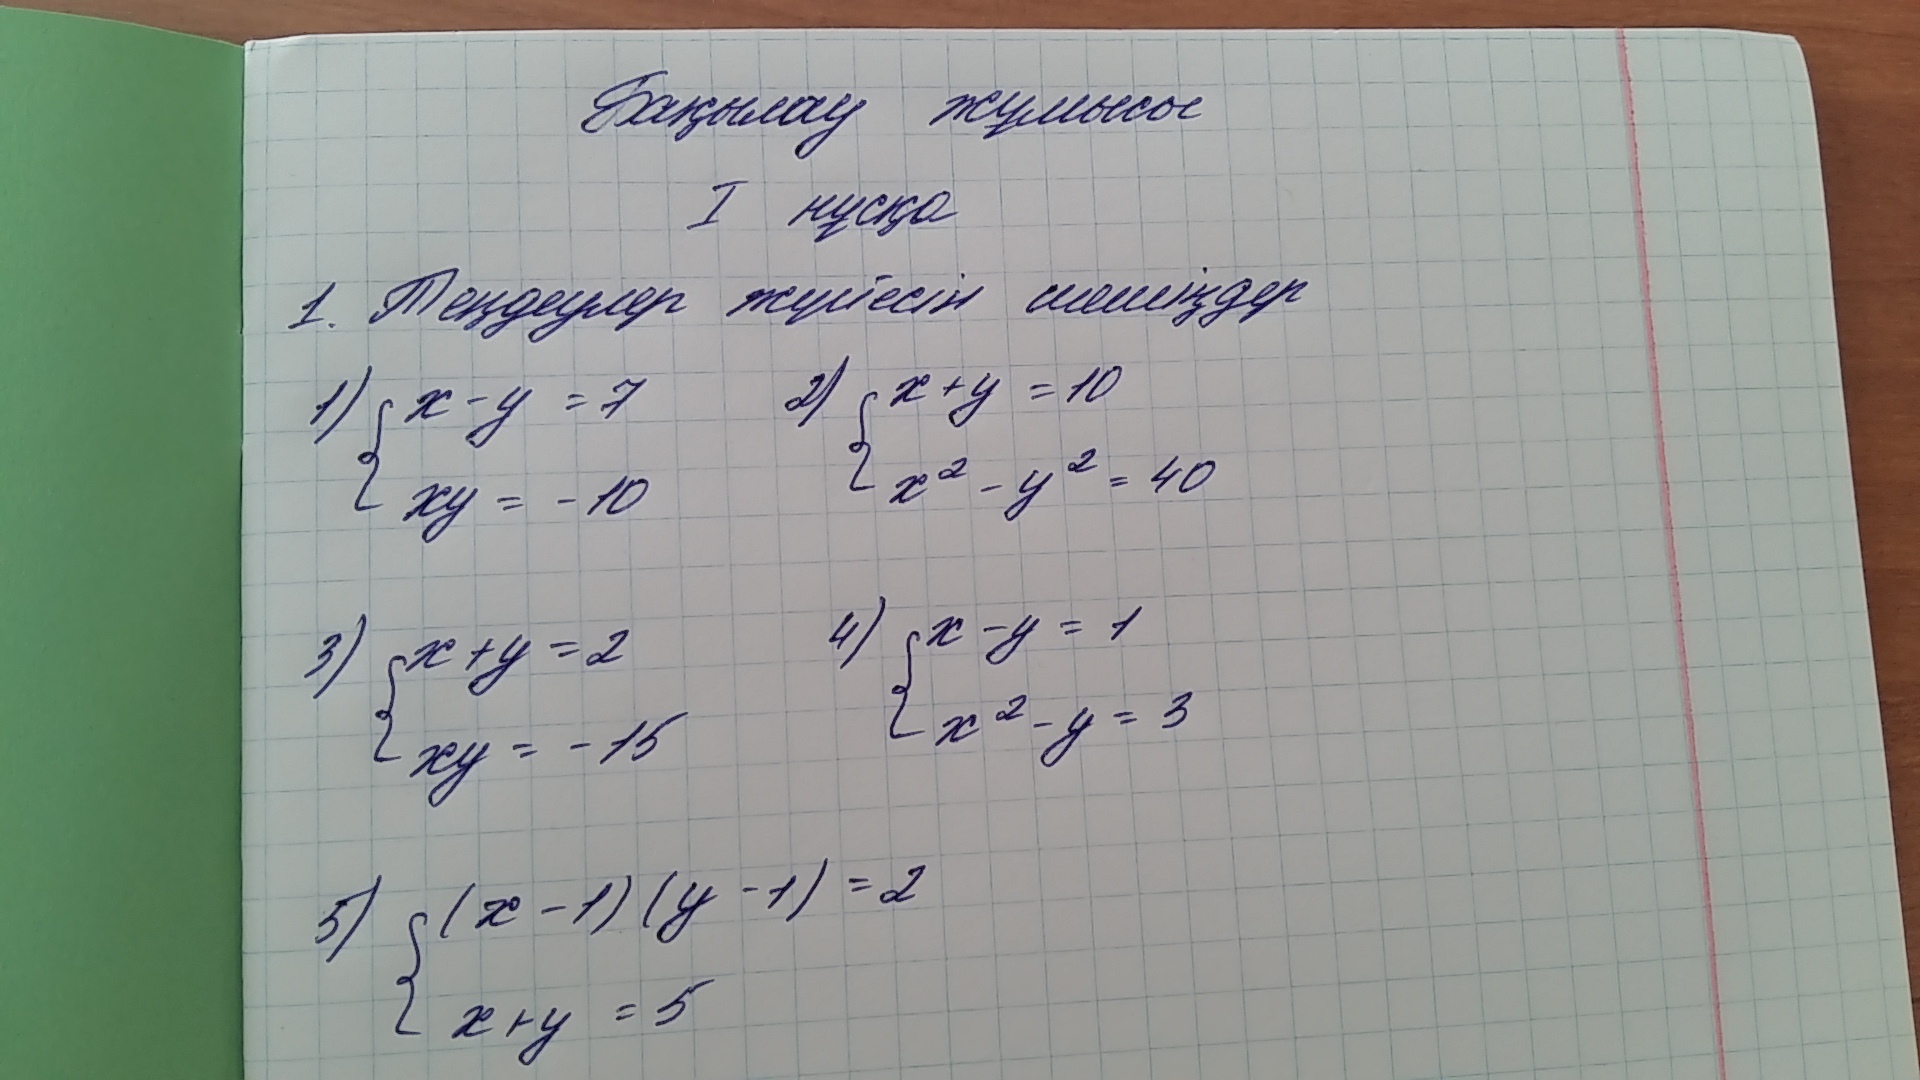 Бақылау жұмысы
I нұсқа
1. Теңдеулер жүйесін шешіңдер
1) { x - y = 7
xy = -10
2) { x + y = 10
x² - y² = 40
3) { x + y = 2
xy = -15
4) { x - y = 1
x² - y = 3
5) { (x - 1)(y - 1) = 2
x + y = 5